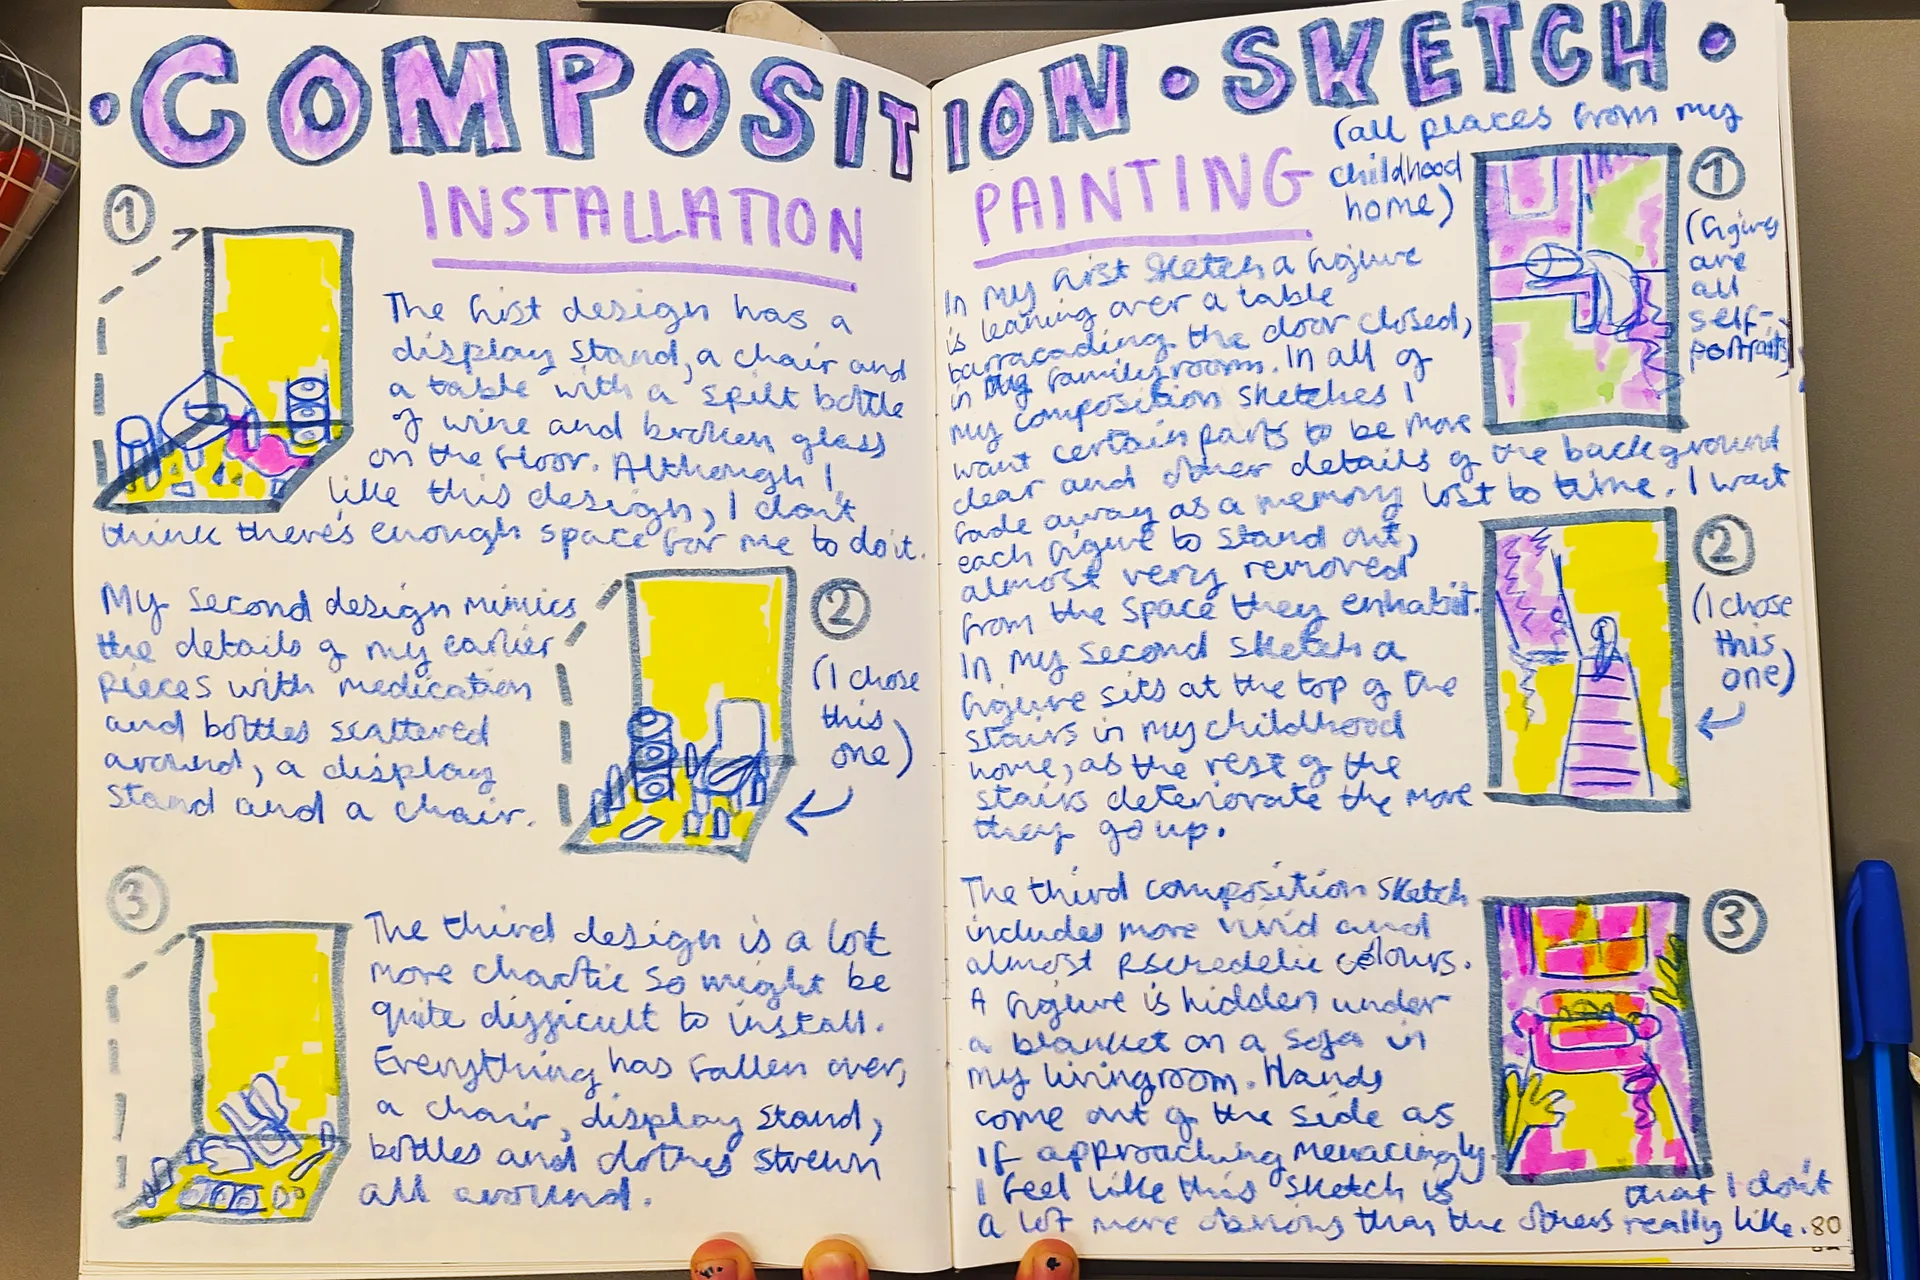 •COMPOSITION•SKETCH•
INSTALLATION
1
The first design has a
display stand, a chair and
a table with a spilt bottle
of wine and broken glass
on the floor. Although I
like this design, I don't
think there's enough space for me to do it.
My second design mimics
the details of my earlier
pieces with medication
and bottles scattered
around, a display
stand and a chair.
2
(I chose
this
one)
3
The third design is a lot
more chaotic so might be
quite difficult to install.
Everything has fallen over,
a chair, display stand,
bottles and clothes strewn
all around.
PAINTING
(all places from my
childhood
home)
1
(figures
are
all
self-
portraits)
In my first sketch a figure
is leaning over a table
barracading the door closed,
in my family room. In all of
my composition sketches I
want certain parts to be more
clear and other details of the background
fade away as a memory lost to time. I want
each figure to stand out,
almost very removed
from the space they enhabit.
In my second sketch a
figure sits at the top of the
stairs in my childhood
home, as the rest of the
stairs deteriorate the more
they go up.
2
(I chose
this
one)
The third composition sketch
includes more vivid and
almost pscredelic colours.
A figure is hidden under
a blanket on a sofa in
my livingroom. Hands
come out of the side as
if approaching menacingly.
I feel like this sketch is
a lot more obvious than the others
that I don't
really like.
3
80